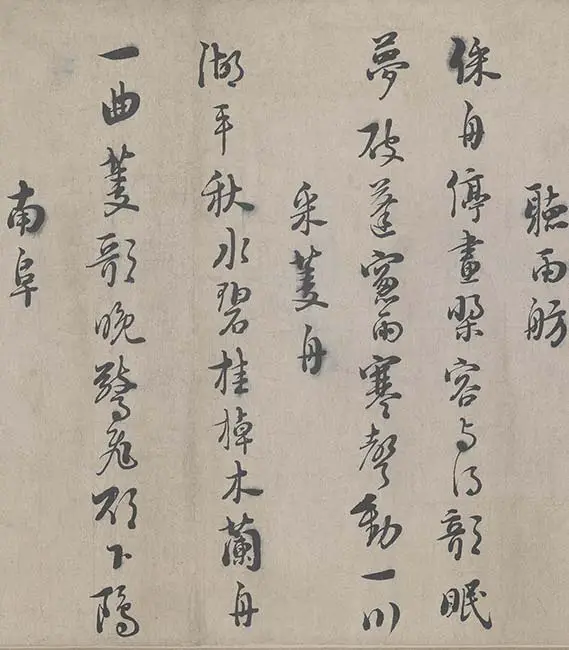 聽雨舫
綵舟停畫槳容与得欹眠
夢破蓬窓雨寒聲動一川
采菱舟
湖平秋水碧桂棹木蘭舟
一曲菱歌晚驚飛欲下鷗
南阜